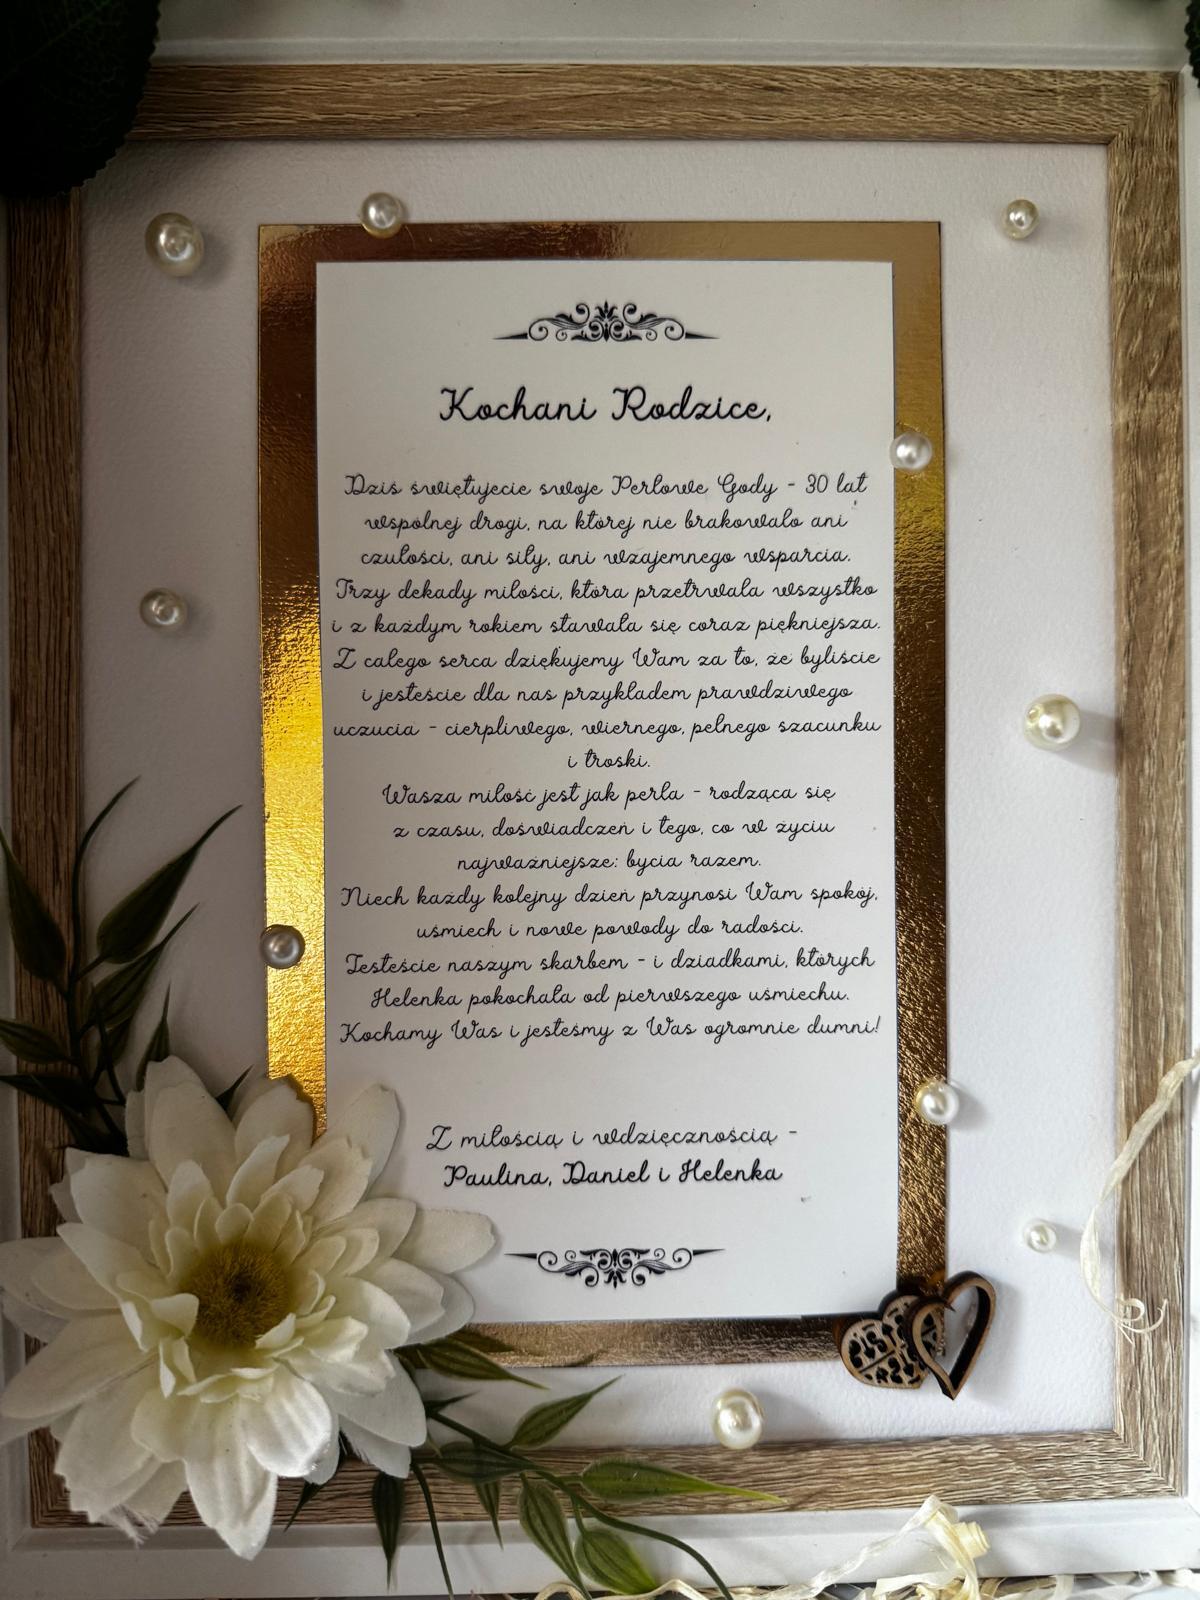 Kochani Rodzice,
Dziś świętujecie swoje Perłowe Gody - 30 lat
wspólnej drogi, na której nie brakowało ani
czułości, ani siły, ani wzajemnego wsparcia.
Trzy dekady miłości, która przetrwała wszystko
i z każdym rokiem stawała się coraz piękniejsza.
Z całego serca dziękujemy Wam za to, że byliście
i jesteście dla nas przykładem prawdziwego
uczucia - cierpliwego, wiernego, pełnego szacunku
i troski.
Wasza miłość jest jak perła - rodząca się
z czasu, doświadczeń i tego, co w życiu
najważniejsze: bycia razem.
Niech każdy kolejny dzień przynosi Wam spokój,
uśmiech i nowe powody do radości.
Jesteście naszym skarbem - i dziadkami, których
Helenka pokochała od pierwszego uśmiechu.
Kochamy Was i jesteśmy z Was ogromnie dumni!
Z miłością i wdzięcznością -
Paulina, Daniel i Helenka